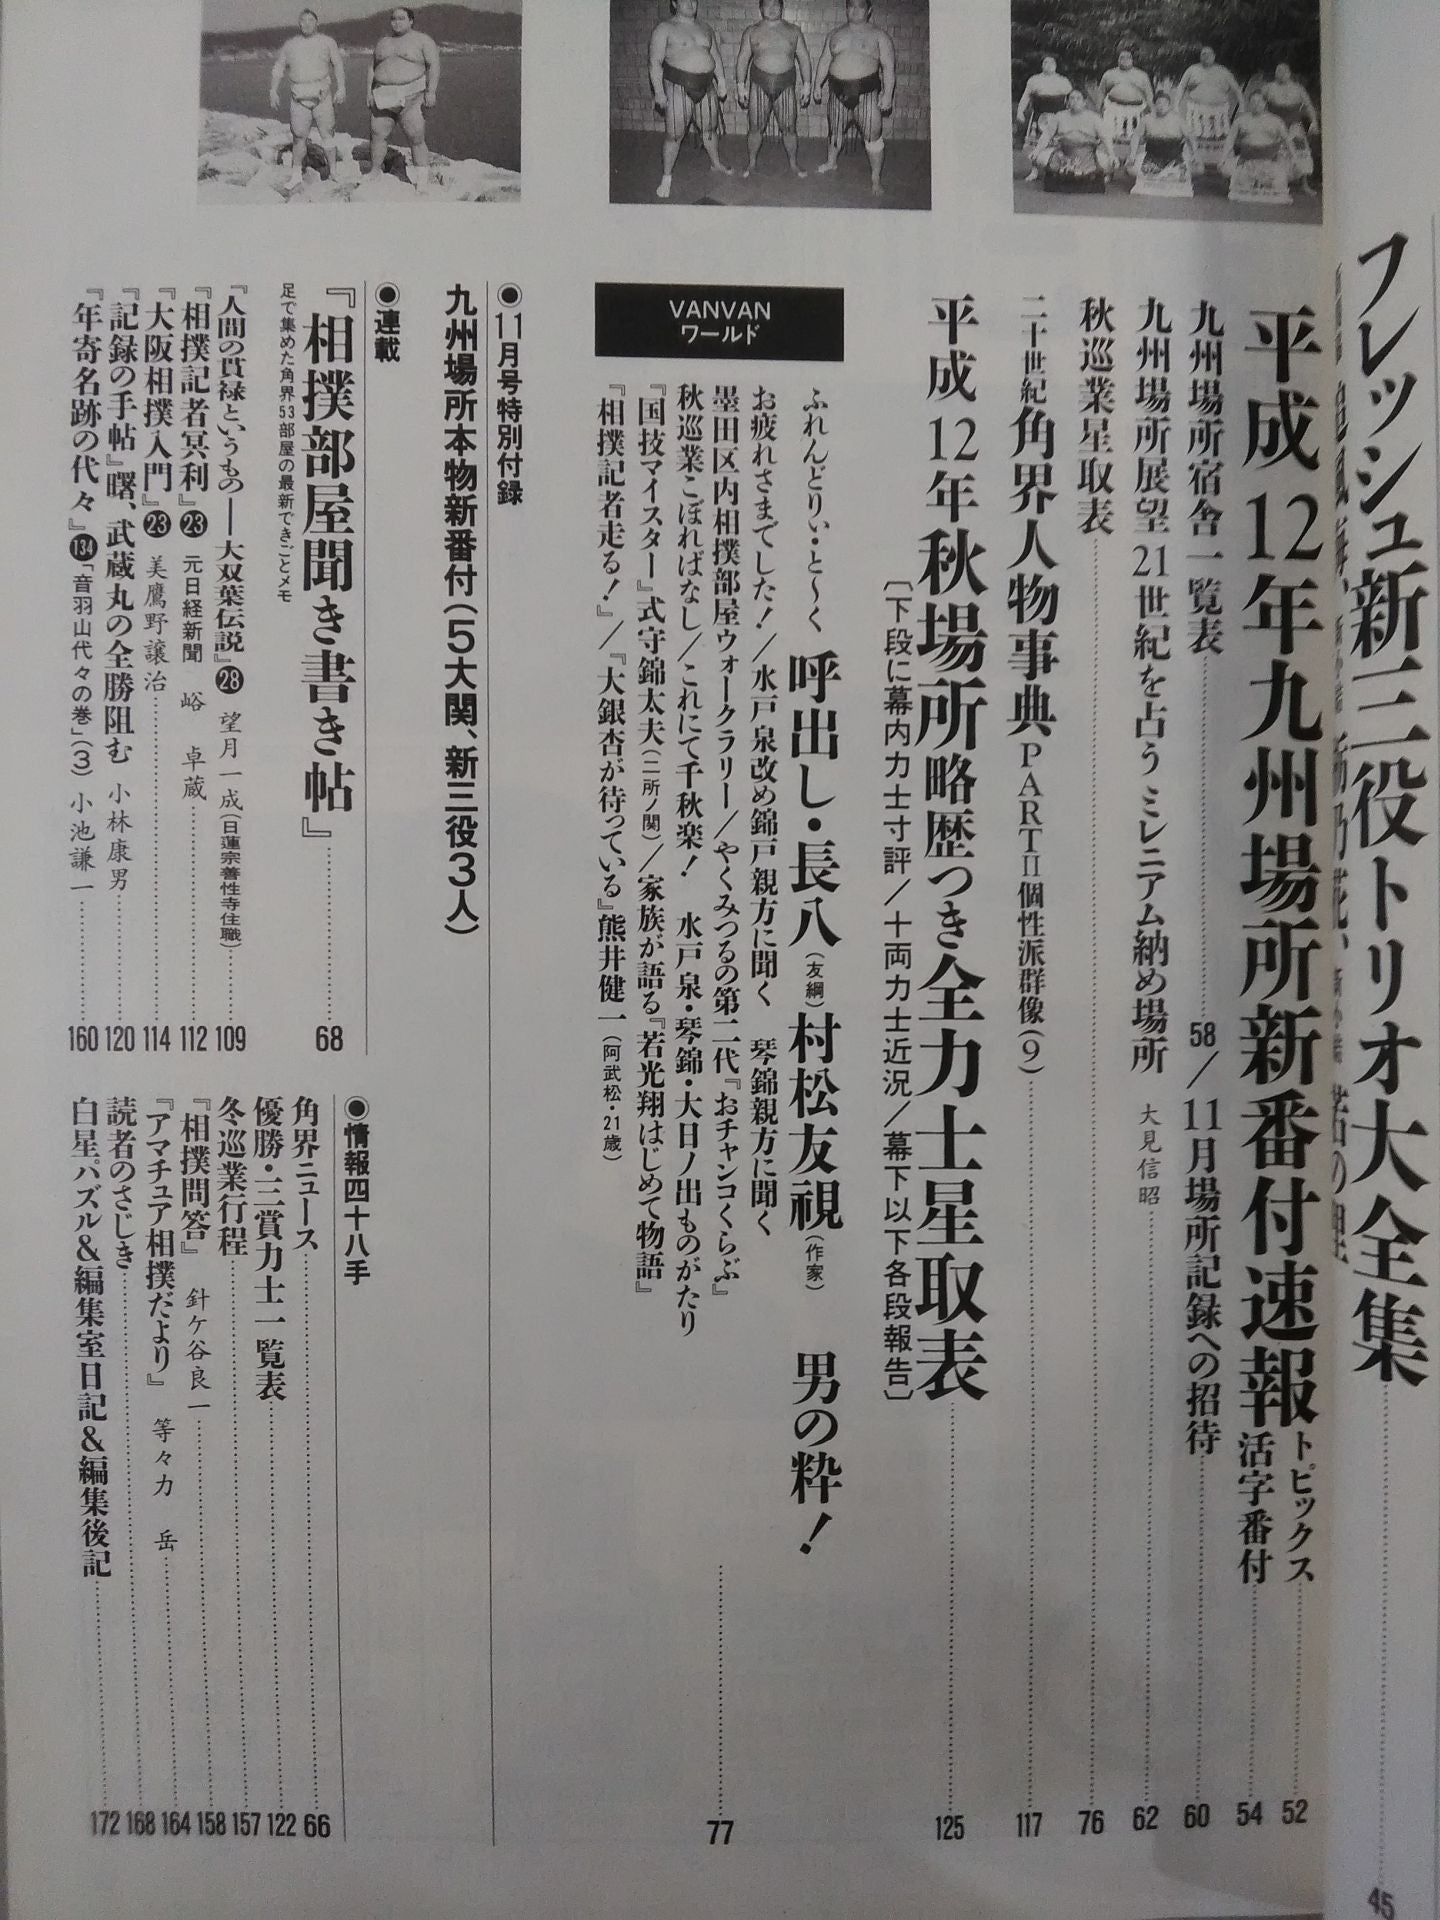 フレッシュ新三役トリオ大全集 45
平成12年九州場所新番付速報 トピックス 52
活字番付 54
九州場所宿舎一覧表 58/11月場所記録への招待 60
九州場所展望 21世紀を占うミレニアム納め場所 大見信昭 62
秋巡業星取表 76
二十世紀角界人物事典PARTII個性派群像(9) 117
平成12年秋場所略歴つき全力士星取表 125
〔下段に幕内力士寸評/十両力士近況/幕下以下各段報告〕
VANVAN
ワールド
ふれんどりぃ・と〜く 呼出し・長八(友綱)村松友視(作家) 男の粋!
お疲れさまでした!/水戸泉改め錦戸親方に聞く 琴錦親方に聞く
墨田区内相撲部屋ウォークラリー/やくみつるの第二代『おチャンコくらぶ』
77
秋巡業こぼればなし/これにて千秋楽! 水戸泉・琴錦・大日ノ出ものがたり
『国技マイスター』式守錦太夫(二所ノ関)/家族が語る『若光翔はじめて物語』
『相撲記者走る!』/『大銀杏が待っている』熊井健一(阿武松・21歳)
●11月号特別付録
九州場所本物新番付(5大関、新三役3人)
●連載
『相撲部屋聞き書き帖』 68
足で集めた角界53部屋の最新できごとメモ
『人間の貫禄というもの――大双葉伝説』28 望月一成(日蓮宗善性寺住職) 109
『相撲記者冥利』23 元日経新聞 峪 卓蔵 112
『大阪相撲入門』23 美鷹野譲治 114
『記録の手帖』曙、武蔵丸の全勝阻む 小林康男 120
『年寄名跡の代々』134「音羽山代々の巻」(3) 小池謙一 160
●情報四十八手
角界ニュース 66
優勝・三賞力士一覧表 122
冬巡業行程 157
『相撲問答』 針ケ谷良一 158
『アマチュア相撲だより』 等々力 岳 164
読者のさじき 168
白星パズル&編集室日記&編集後記 172